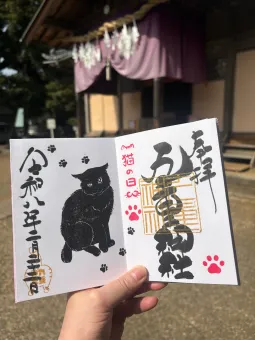 奉拝
九重神社
猫の日
令和八年二月二十二日